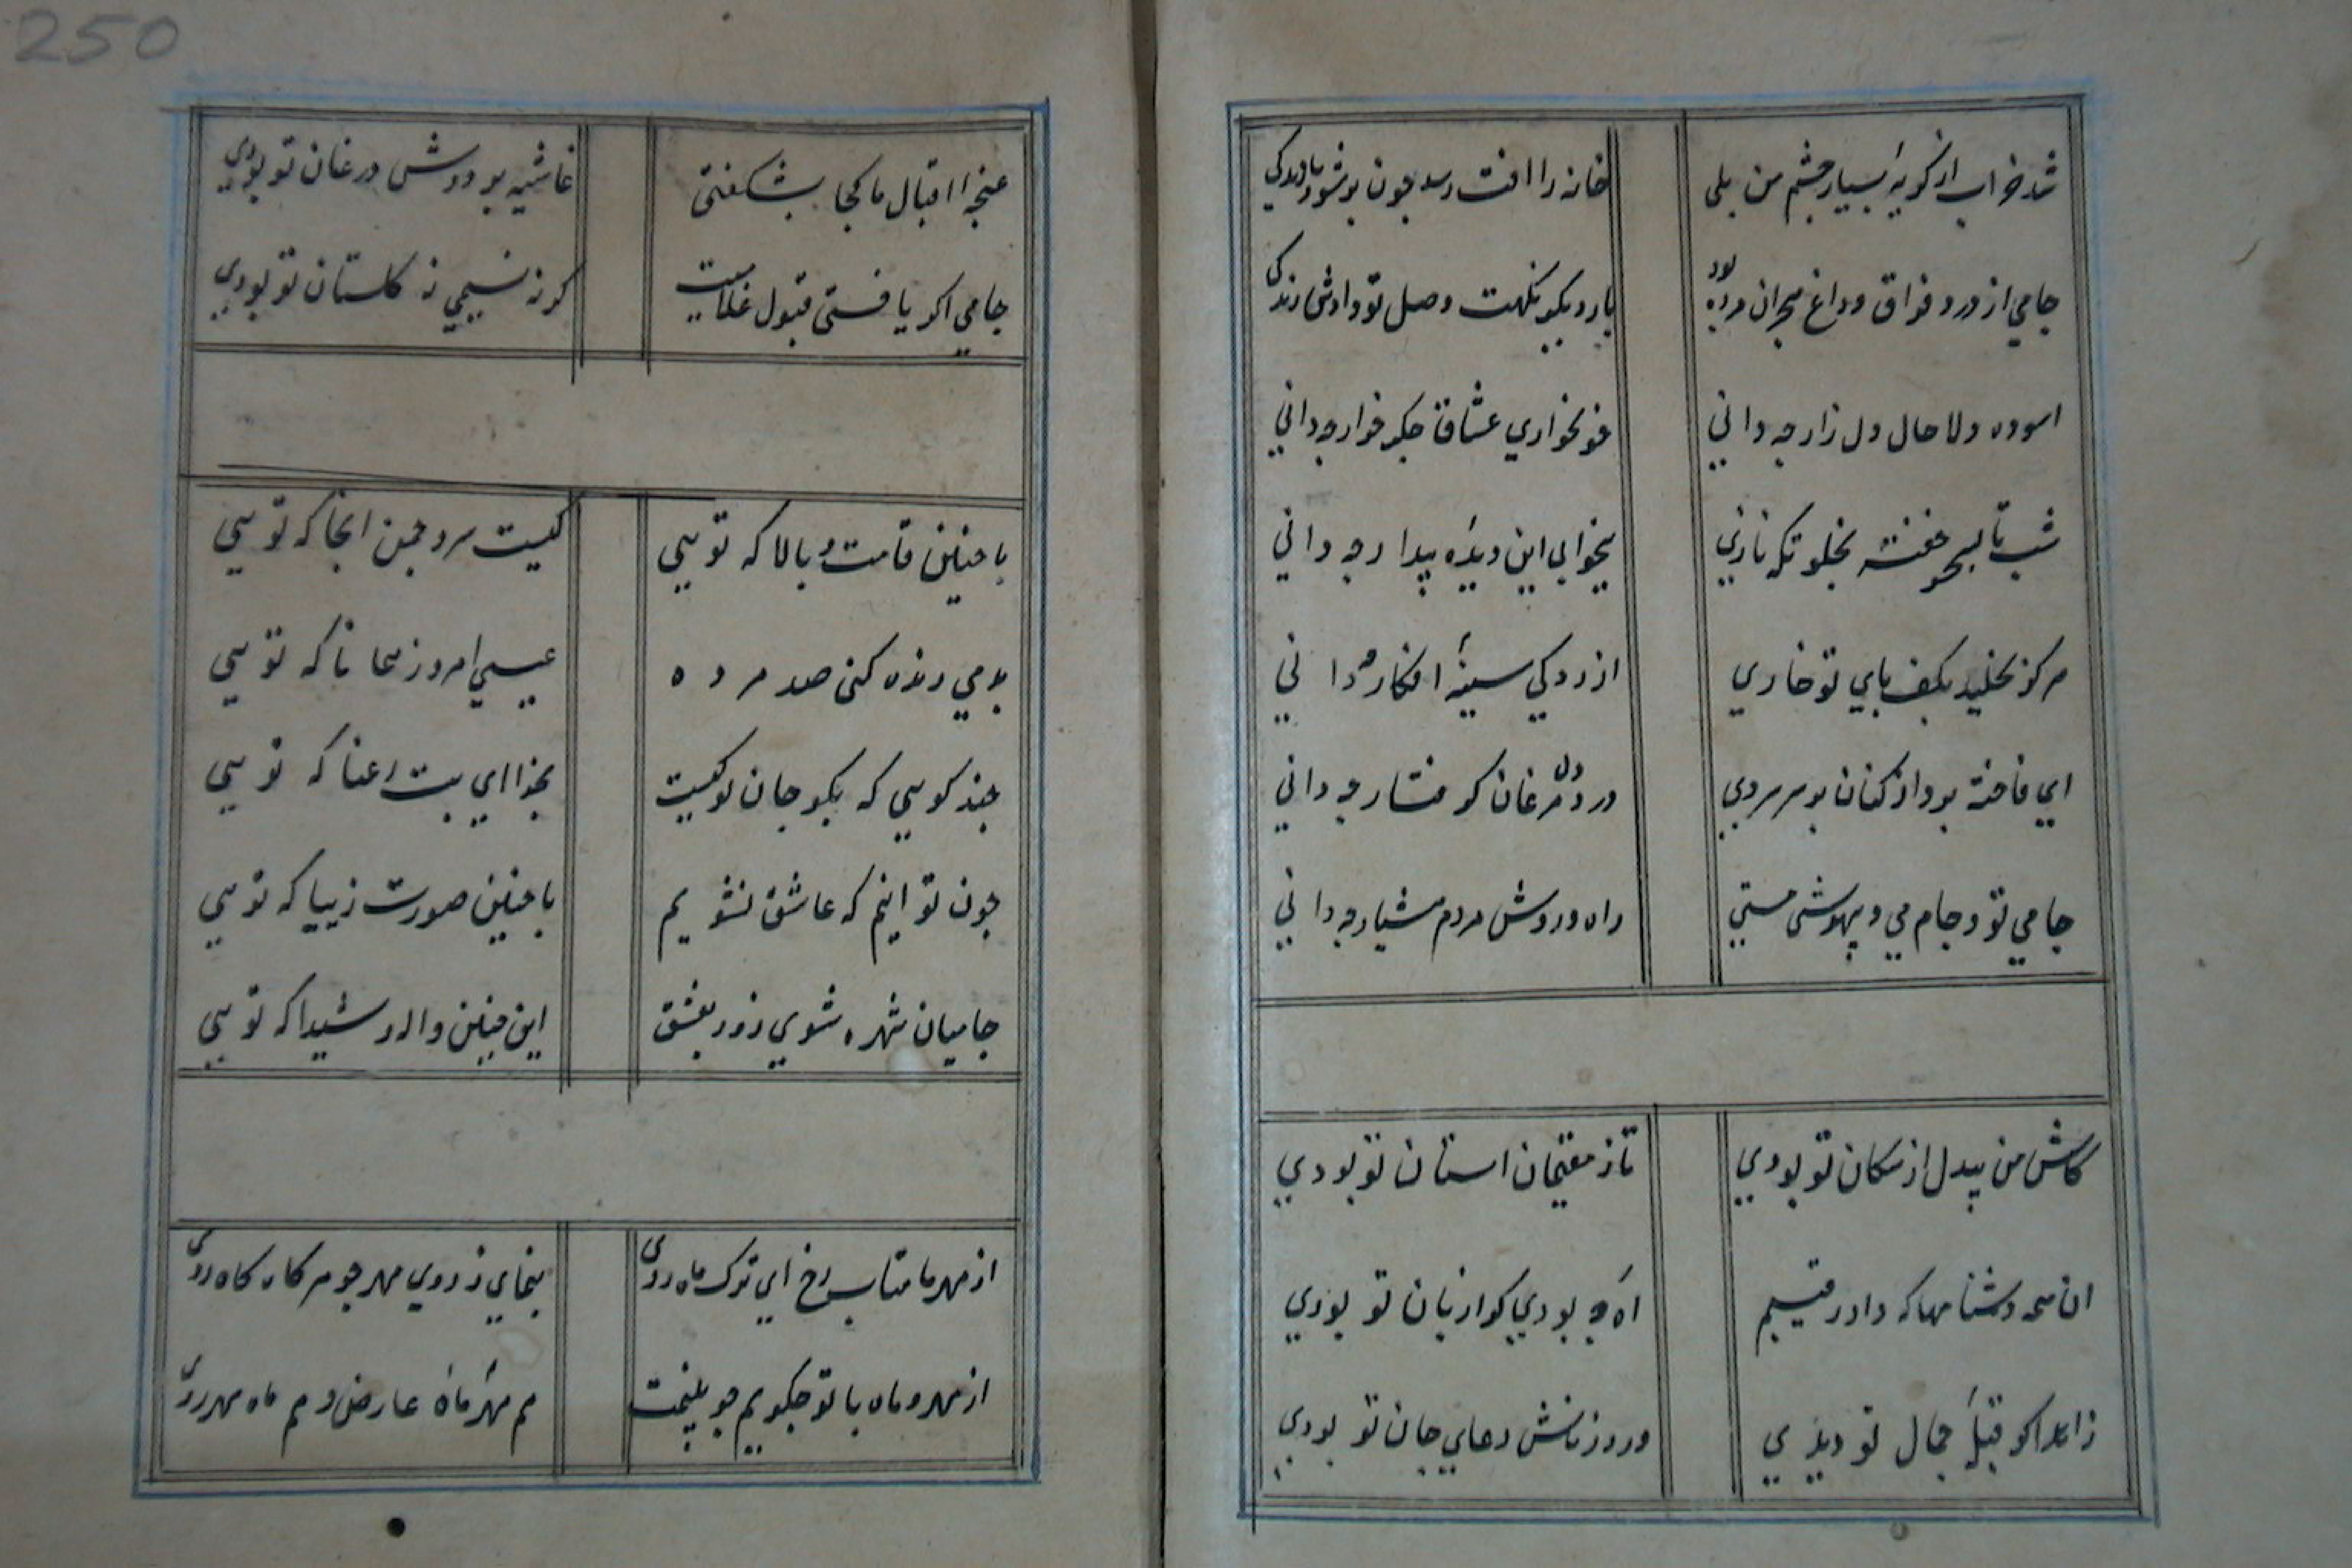 شد خراب از گریهٔ بسیار چشم من بلی
خانه را افت رسد چون بر شود بارندکی
جامی از درد فراق و داغ هجران مرده بود
بار دیکر نکهت وصل تو دادش زندکی
اسوده دلا حال دل زار چه دانی
خونخواری عشاق جکر خوار چه دانی
شب تا بسحر خفته بخلوتکه نازی
بیخوابی این دیدهٔ بیدار چه دانی
هرکز نخلیده بکف پای تو خاری
ازردکی سینهٔ افکار چه دانی
ای فاخته پرواز کنان بر سر سروی
درد دل مرغان گرفتار چه دانی
جامی تو و جام می و بیهوشی مستی
راه و روش مردم هشیار چه دانی
کاش من بیدل از سکان تو بودی
تا ز مقیمان استان تو بودی
ان همه دشنامها که داد رقیبم
اه چه بودی کر از زبان تو بودی
زاهد اکر قبلهٔ جمال تو دیدی
ورد زبانش دعای جان تو بودی
250
غنچه اقبال ما کجا بشکفتی
کر نه نسیمی ز کلستان تو بودی
جامی اکر یافتی قبول غلامیت
غاشیه بر دوش در عنان تو بودی
با چنین قامت و بالا که تویی
کیست سرو چمن انجا که تویی
بدمی زنده کنی صد مرده
عیسی امروز همانا که تویی
چند کویی که بکو جان تو کیست
بخدا ای بت رعنا که تویی
چون توانیم که عاشق نشویم
با چنین صورت زیبا که تویی
جامیا شهره شوی زود بعشق
این چنین واله و شیدا که تویی
از مهر ما متاب رخ ای ترک ماه روی
بنمای ز روی مهر چو مه کاه کاه روی
از مهر و ماه با تو چکویم چو بینمت
هم مهر ماه عارض و هم ماه مهر روی